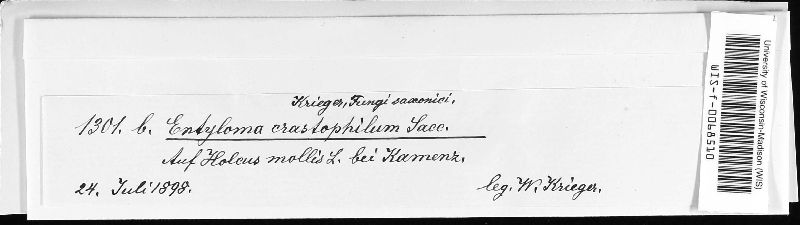 Krieger, Fungi saxonici.
1301. b. Entyloma crastophilum Sacc.
Auf Holcus mollis L. bei Kamenz.
24. Juli 1898. leg. W. Krieger.
University of Wisconsin-Madison (WIS)
WIS-f-0068510